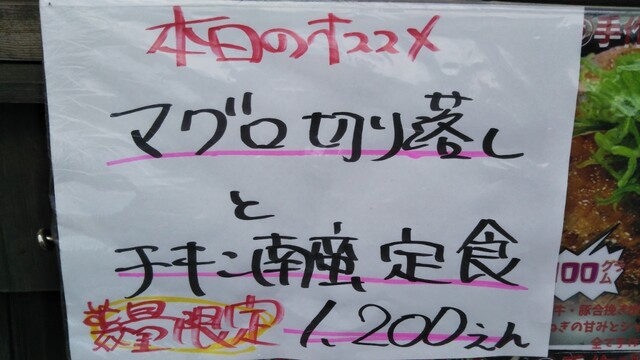 本日のオススメ
マグロ切り落し
と
チキン南蛮定食
数量限定 1,200えん
手作
00グラム
牛・豚合挽き
ねぎの甘みと
全て手